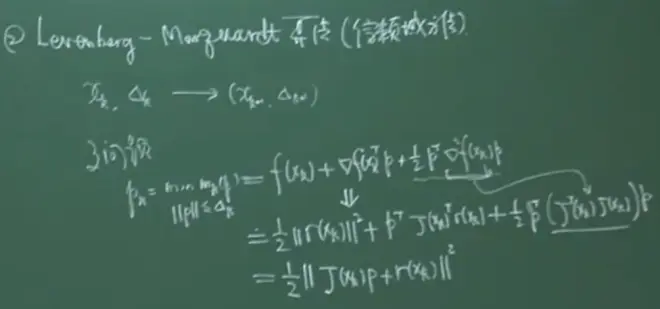 ② Levenberg - Marquardt 方法 (信赖域方法)
x_k, Δ_k ⟶ (x_{k+1}, Δ_{k+1})
子问题
p_k = min m_k(p) = f(x_k) + ∇f(x_k)^T p + 1/2 p^T ∇²f(x_k) p
||p|| ≤ Δ_k ⇓
≐ 1/2 ||r(x_k)||² + p^T J(x_k)^T r(x_k) + 1/2 p^T (J^T(x_k) J(x_k)) p
= 1/2 || J(x_k) p + r(x_k) ||²